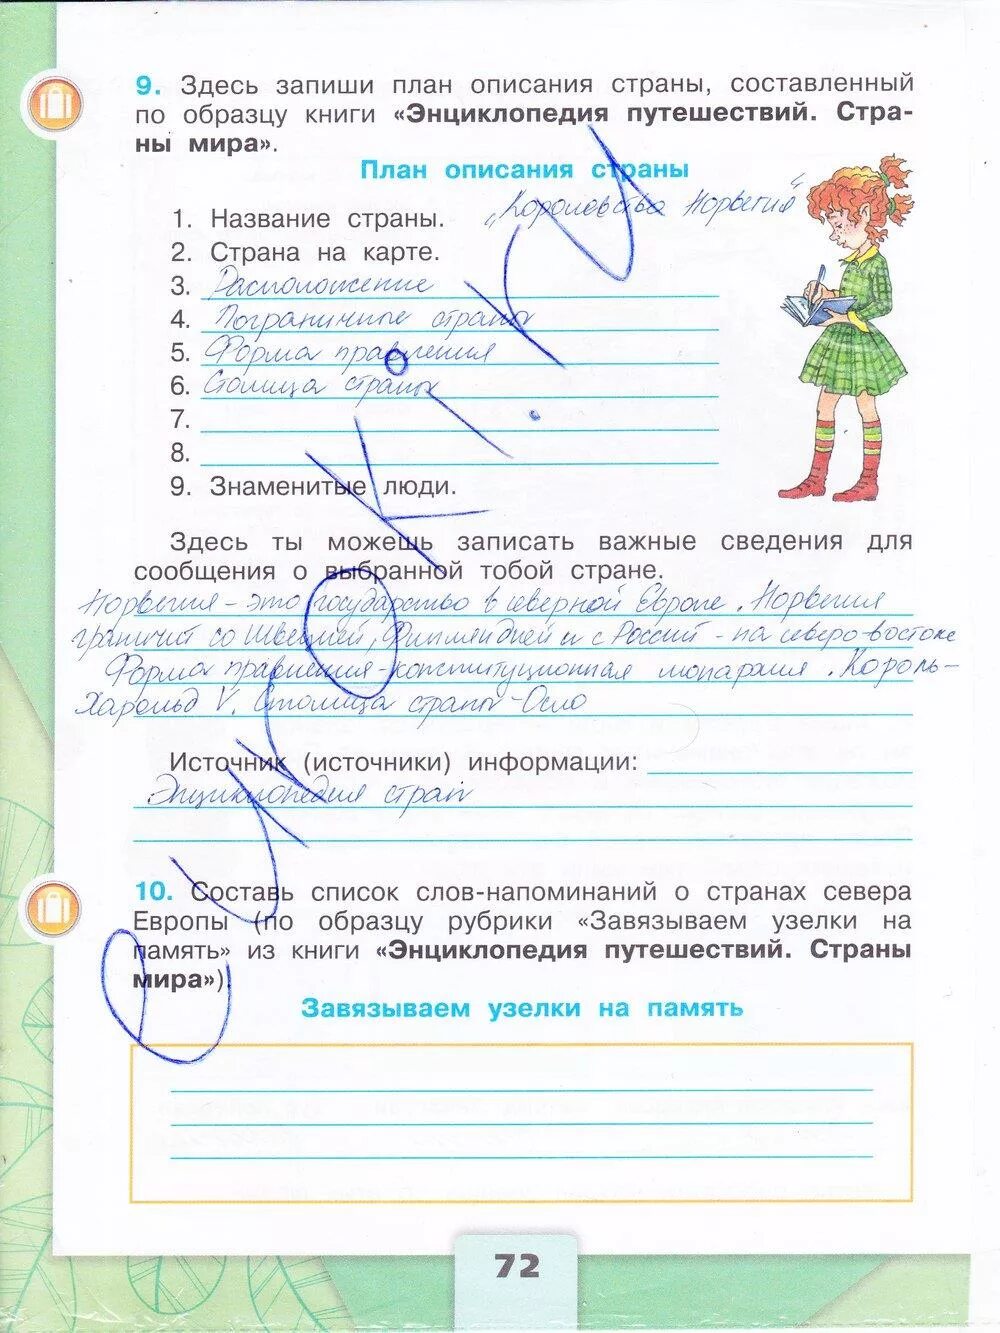 9. Здесь запиши план описания страны, составленный
по образцу книги «Энциклопедия путешествий. Стра-
ны мира».
План описания страны
1. Название страны. „Королевство Норвегия“
2. Страна на карте.
3. Расположение
4. Пограничные страны
5. Форма правления
6. Столица страны
7.
8.
9. Знаменитые люди.
Здесь ты можешь записать важные сведения для
сообщения о выбранной тобой стране.
Норвегия – это государство в северной Европе. Норвегия
граничит со Швецией, Финляндией и с Россией - на северо-востоке
Форма правления - конституционная монархия. Король-
Харольд V. Столица страны - Осло
Источник (источники) информации:
Энциклопедия стран
10. Составь список слов-напоминаний о странах севера
Европы (по образцу рубрики «Завязываем узелки на
память» из книги «Энциклопедия путешествий. Страны
мира»).
Завязываем узелки на память
72